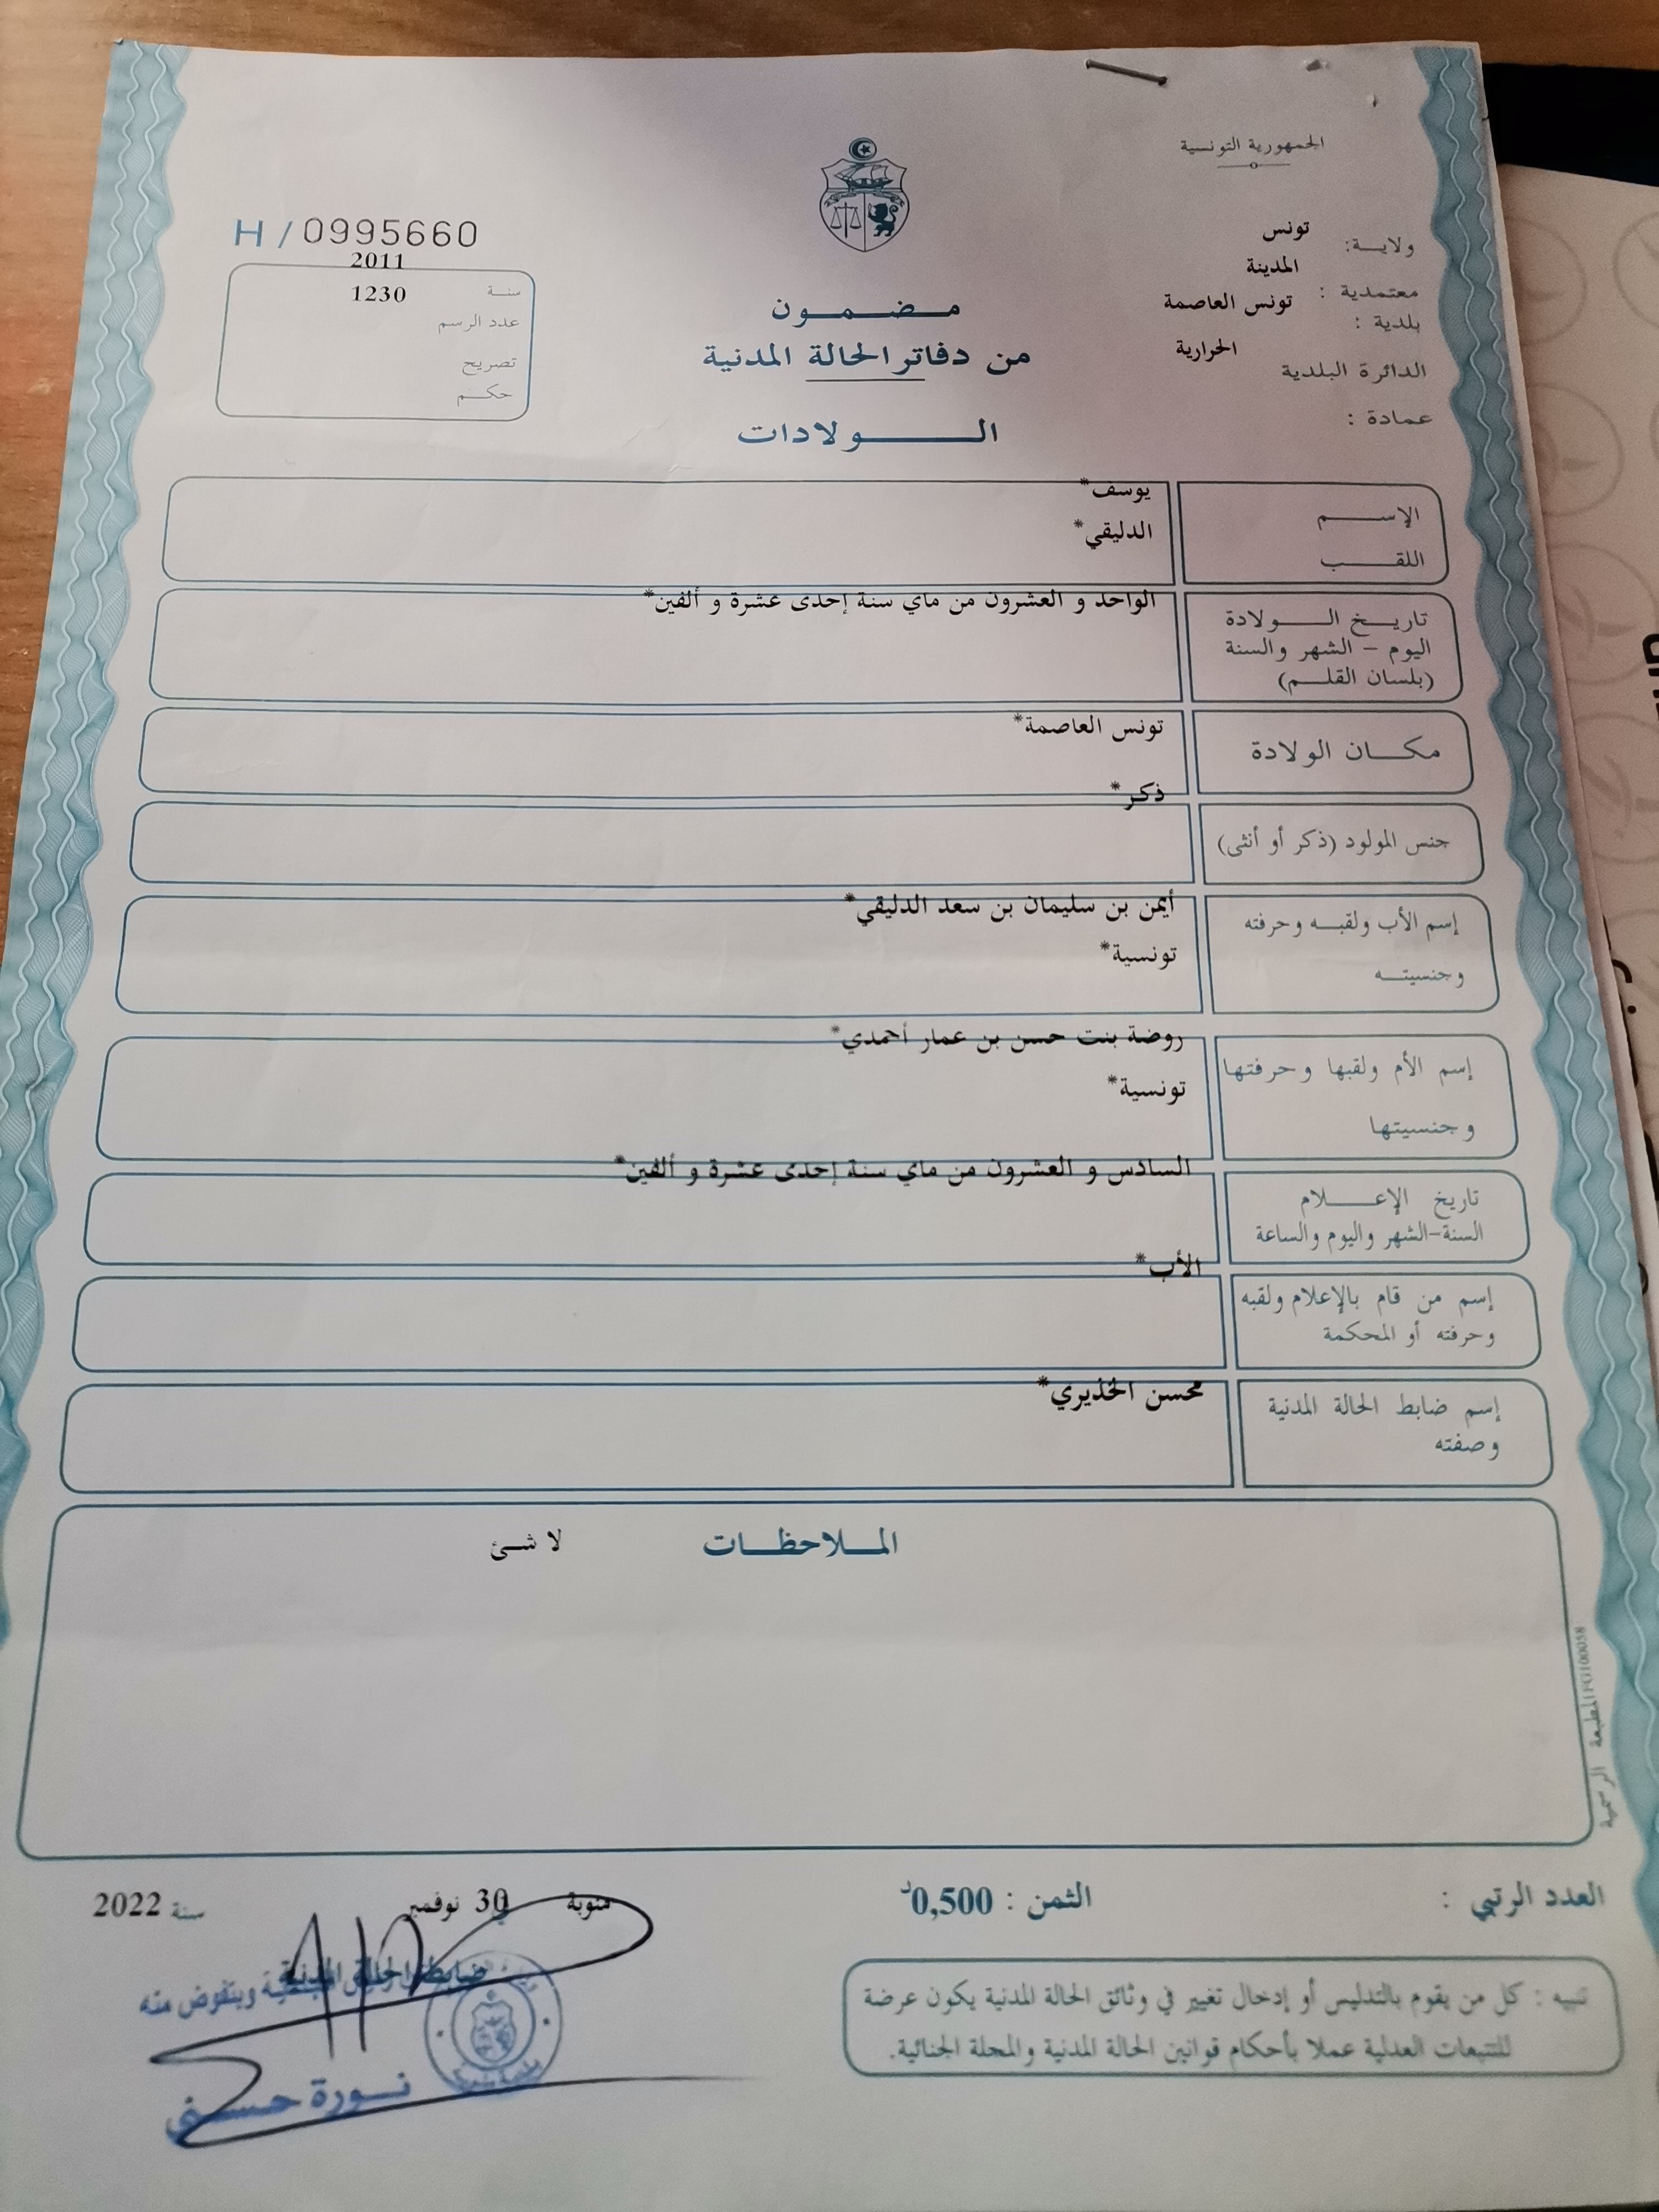 الجمهورية التونسية
ولاية: تونس
المدينة
معتمدية :
تونس العاصمة
بلدية :
الحرارية
الدائرة البلدية
عمادة :
H / 0995660
2011
سنة
1230
عدد الرسم
تصريح
حكم
مضمون
من دفاتر الحالة المدنية
الولادات
الإسم
يوسف*
اللقب
الدليقي*
تاريخ الولادة
اليوم - الشهر والسنة
(بلسان القلم)
الواحد و العشرون من ماي سنة إحدى عشرة و ألفين*
مكان الولادة
تونس العاصمة*
جنس المولود (ذكر أو أنثى)
ذكر*
إسم الأب ولقبه وحرفته
وجنسيته
أيمن بن سليمان بن سعد الدليقي*
تونسية*
إسم الأم ولقبها وحرفتها
وجنسيتها
روضة بنت حسن بن عمار أحمدي*
تونسية*
تاريخ الإعلام
السنة-الشهر واليوم والساعة
السادس و العشرون من ماي سنة إحدى عشرة و ألفين*
إسم من قام بالإعلام ولقبه
وحرفته أو المحكمة
الأب*
إسم ضابط الحالة المدنية
وصفته
محسن الخذيري*
الملاحظات
لا شئ
المطبعة الرسمية
العدد الرتبي :
الثمن : 0,500د
منوبة
30 نوفمبر
سنة 2022
ضابط الحالة المدنية
وبتفوض منه
نورة حسني
تنبيه : كل من يقوم بالتدليس أو إدخال تغيير في وثائق الحالة المدنية يكون عرضة
للتتبعات العدلية عملا بأحكام قوانين الحالة المدنية والمجلة الجنائية.